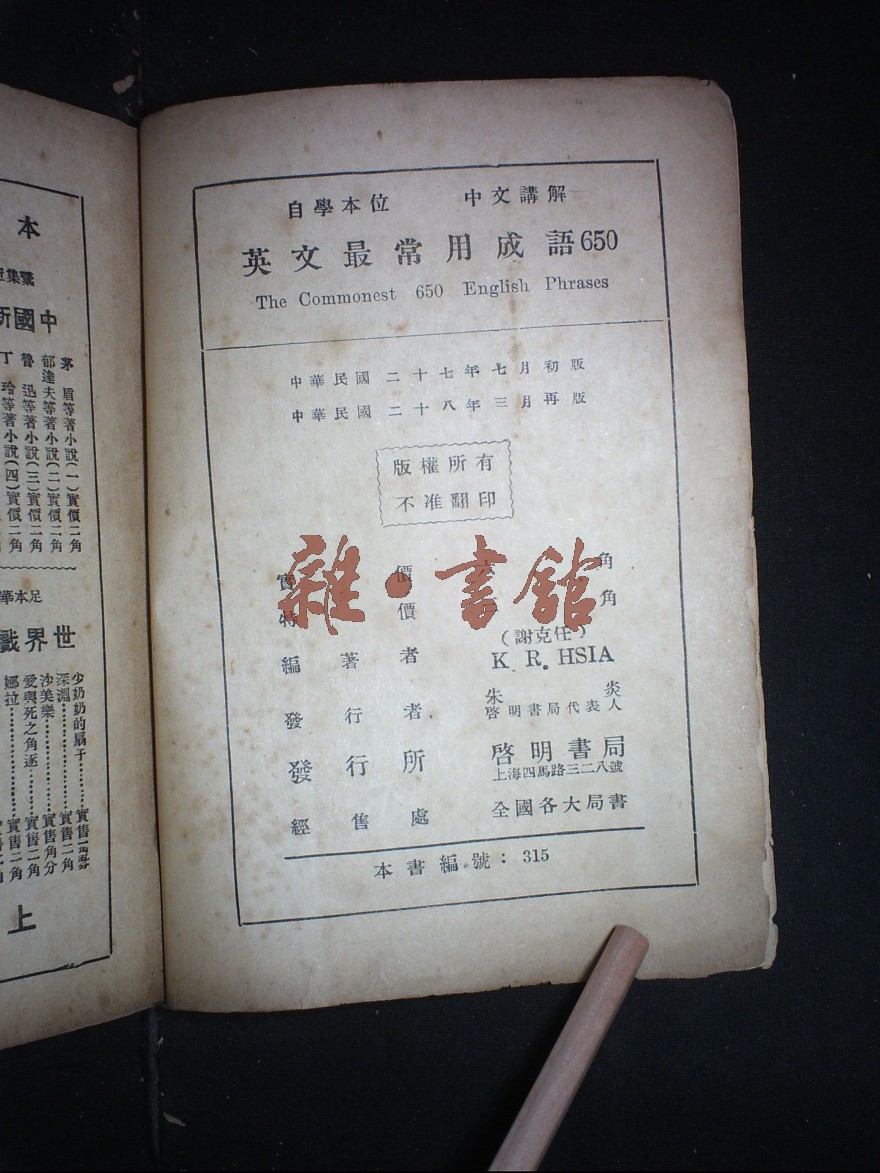 自學本位 中文講解
英文最常用成語650
The Commonest 650 English Phrases
中華民國二十七年七月初版
中華民國二十八年三月再版
版權所有
不准翻印
雜·書館
實價 角
特價 角
(謝克任)
編著者 K. R. HSIA
發行者 朱炎
啓明書局代表人
發行所 啓明書局
上海四馬路三二八號
經售處 全國各大局書
本書編號：315
本
中國新
茅盾等著小說(一)實價二角
郁達夫等著小說(二)實價二角
魯迅等著小說(三)實價二角
丁玲等著小說(四)實價二角
足本華
世界戲
少奶奶的扇子 實售
深淵 實售二角
沙美樂 實售角分
愛與死之角逐 實售二角
娜拉 實售二角
上